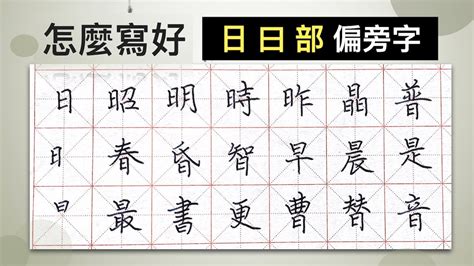 怎麼寫好 日曰部偏旁字
日昭明時昨晶普
日春昏智早晨是
日最書更曹替音